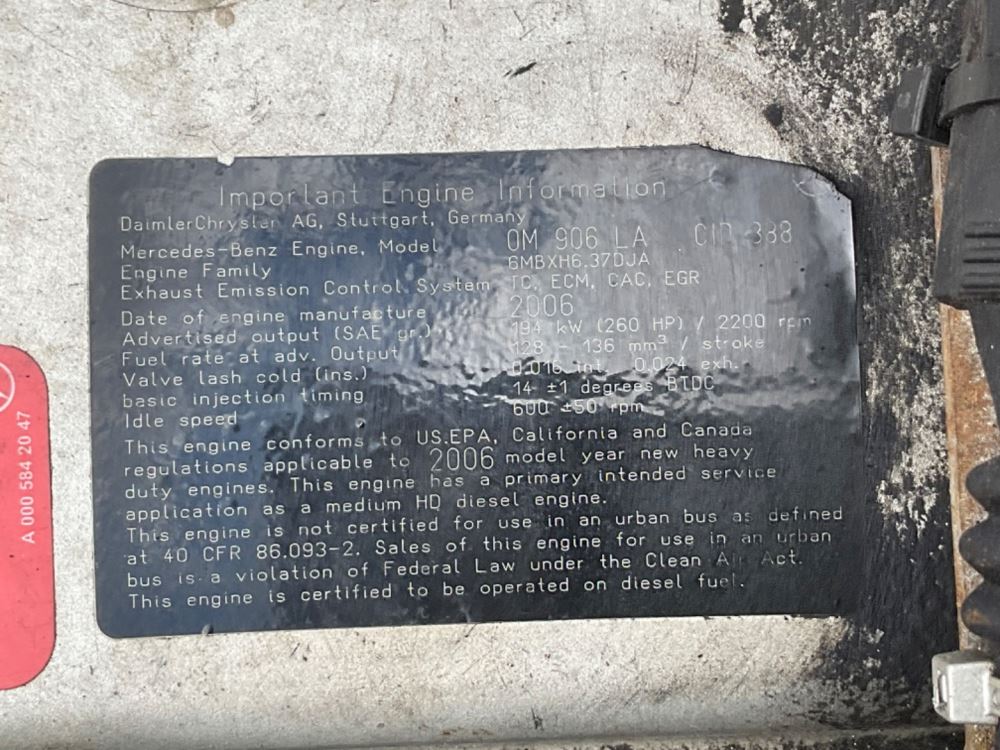 Important Engine Information
DaimlerChrysler AG, Stuttgart, Germany
Mercedes-Benz Engine, Model OM 906 LA CID 388
Engine Family 6MBXH6.37DJA
Exhaust Emission Control System TC, ECM, CAC, EGR
Date of engine manufacture 2006
Advertised output (SAE gr.) 194 kW (260 HP) / 2200 rpm
Fuel rate at adv. Output 128 - 136 mm³ / stroke
Valve lash cold (ins.) 0.016 int. 0.024 exh.
basic injection timing 14 ±1 degrees BTDC
Idle speed 600 ±50 rpm
This engine conforms to US.EPA, California and Canada
regulations applicable to 2006 model year new heavy
duty engines. This engine has a primary intended service
application as a medium HD diesel engine.
This engine is not certified for use in an urban bus as defined
at 40 CFR 86.093-2. Sales of this engine for use in an urban
bus is a violation of Federal Law under the Clean Air Act.
This engine is certified to be operated on diesel fuel.
A 000 584 20 47